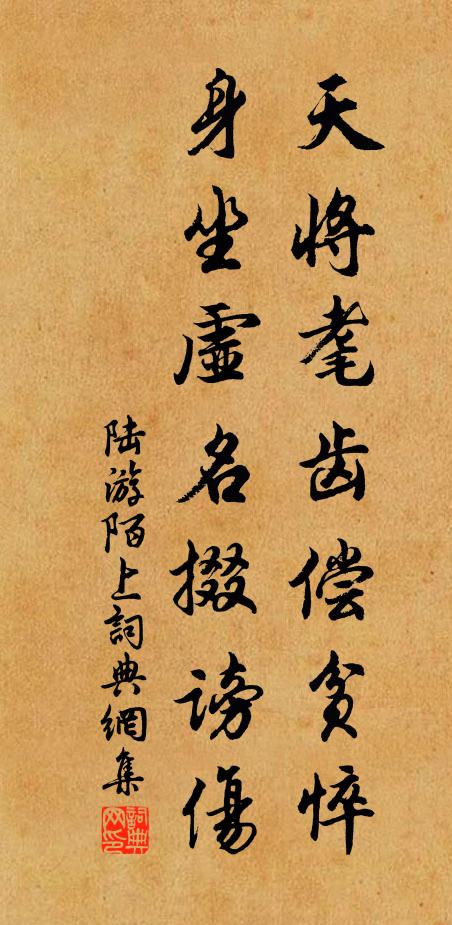 天将耄齿偿贫悴
身坐虚名掇谤傷
陆游陌上詞典網集
詞典网印